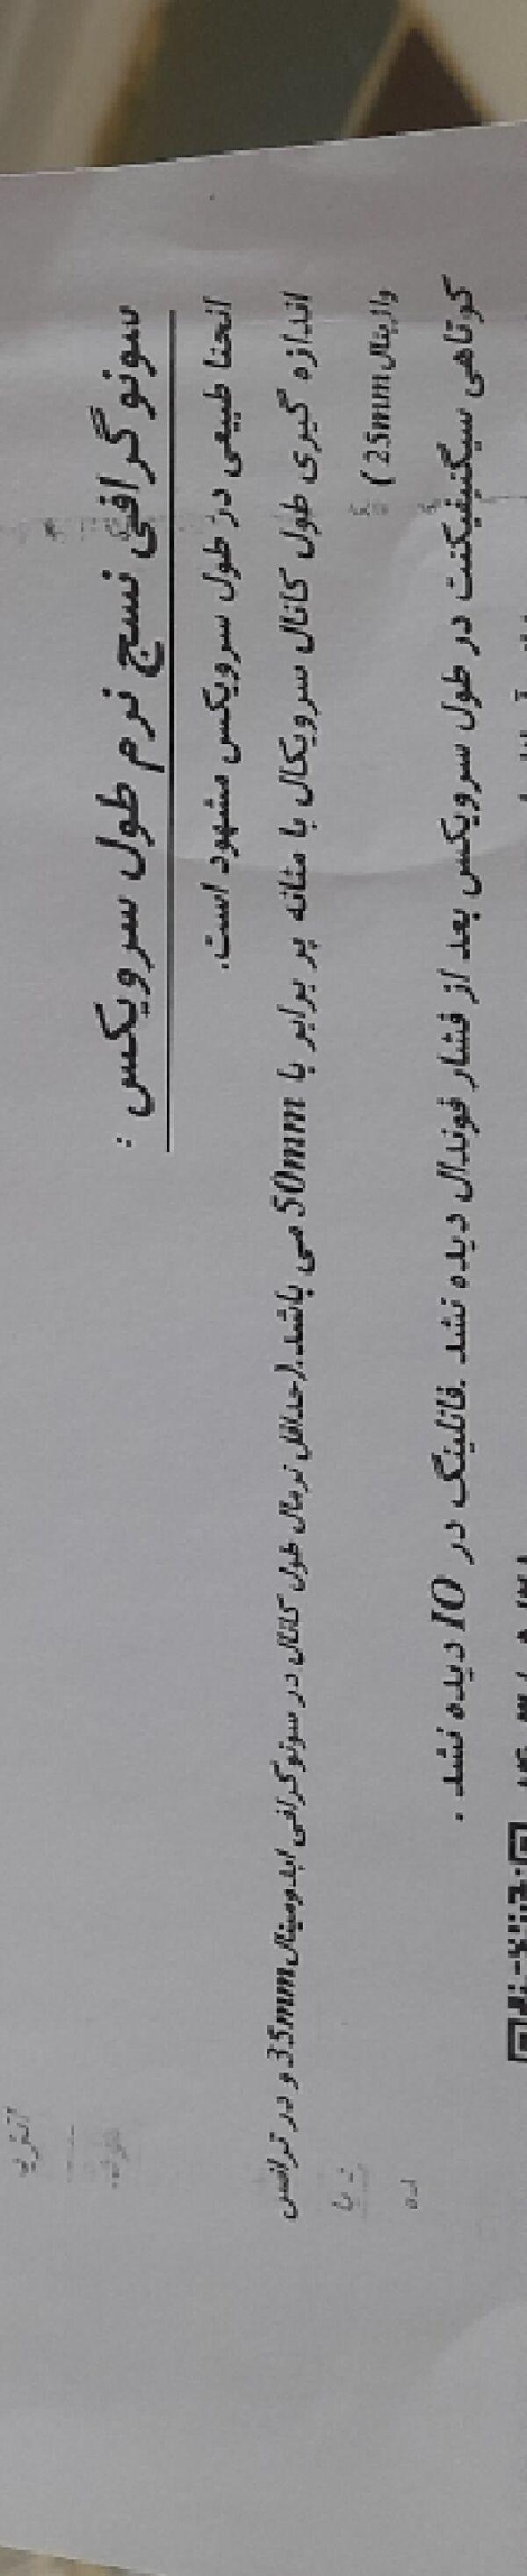 سونوگرافی نسج نرم طول سرویکس :
انحنا طبیعی در طول سرویکس مشهود است.
اندازه گیری طول کانال سرویکال با مثانه پر برابر با 50mm می باشد.(حداقل نرمال طول کانال در سونوگرافی ابدومینال 35mm و در ترانس
واژینال 25mm )
کوتاهی سیگنیفیکنت در طول سرویکس بعد از فشار فوندال دیده نشد .فانلینگ در IO دیده نشد .